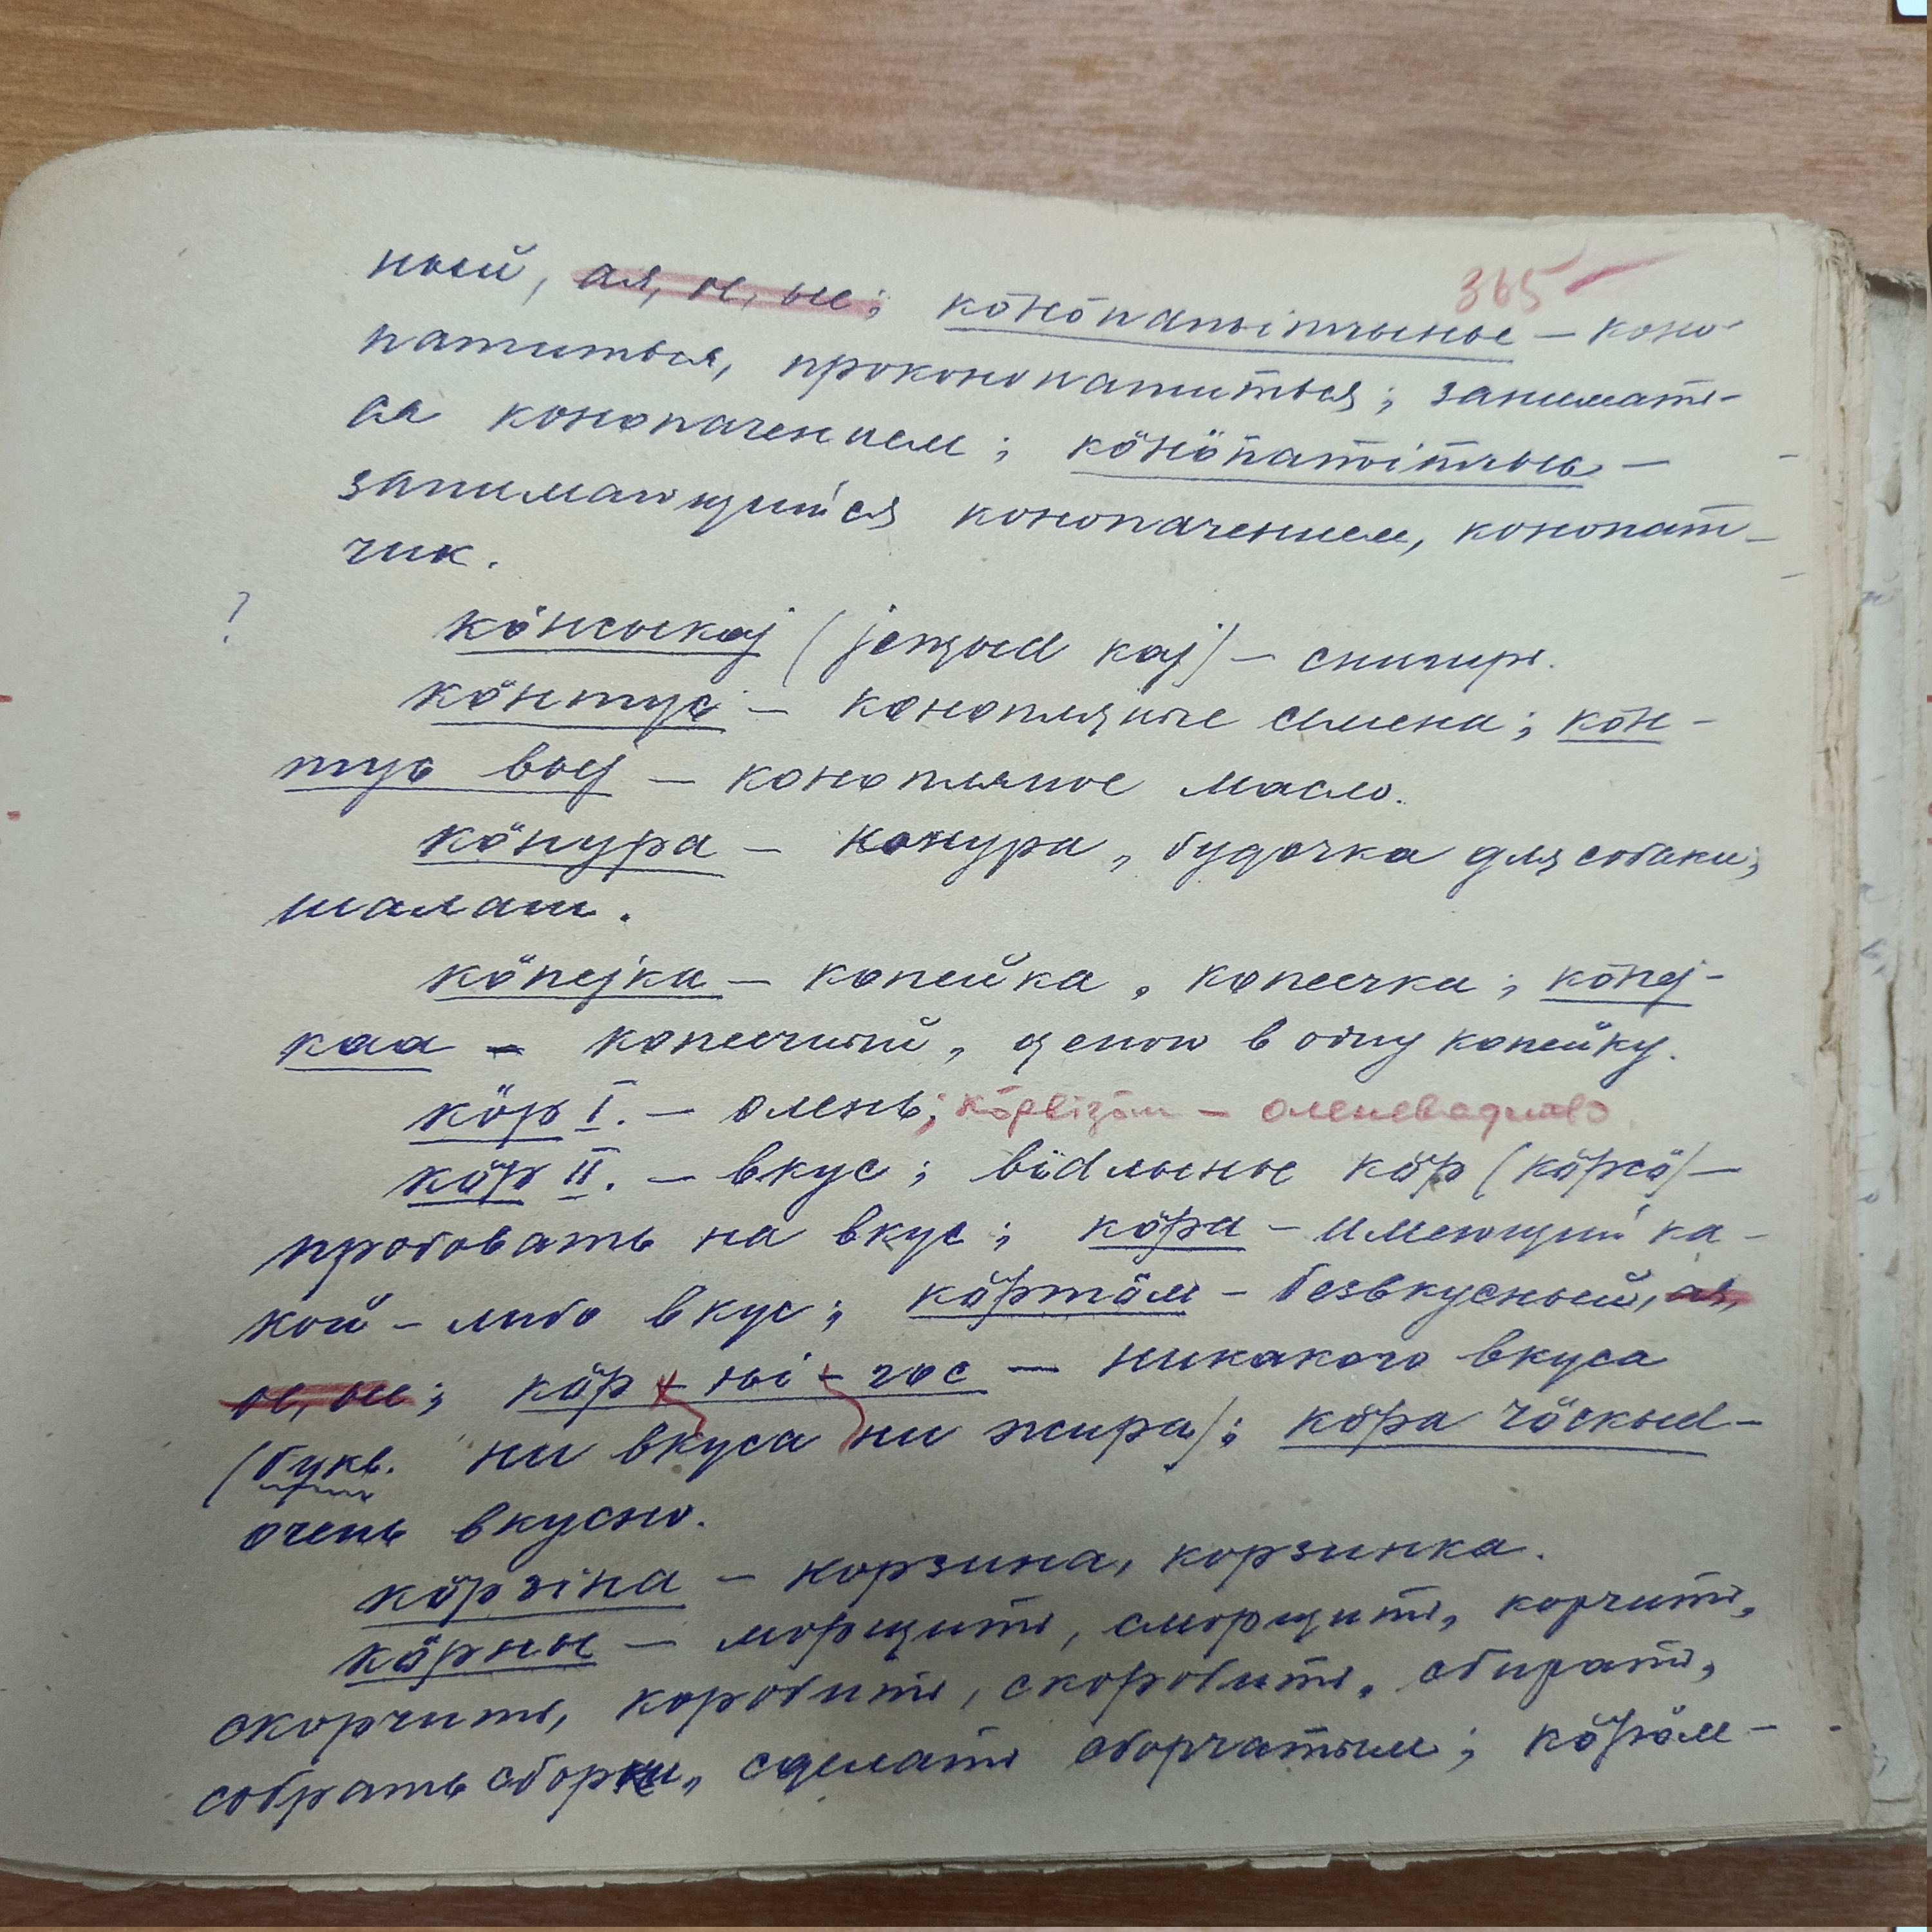 365
ный, ая, ое, ые; кӧнӧпаԏітчыны — коно-
патиться, проконопатиться; занимать-
ся конопачением; кӧнӧпаԏітчыԍ —
занимающийся конопачением, конопат-
чик.
? кӧнсыкај (јенԅыԁ кај) — снигирь.
кӧнтуԍ — конопляные семена; кӧн-
туԍ выј — конопляное масло.
кӧнура — конура, будочка для собаки,
шалаш.
кӧпејка — копейка, копеечка; кӧпеј-
каа — копеечный, ценой в одну копейку.
кӧр I. — олень; кӧрвіԅӧм — оленеводство
кӧр II. — вкус; віԁлыны кӧр (кӧрсӧ) —
пробовать на вкус; кӧра — имеющий ка-
кой-либо вкус; кӧртӧм — безвкусный, ая,
ое, ые; кӧр-ԋі-гос — никакого вкуса
(букв. ни вкуса ни жира); кӧра чӧскыԁ —
очень вкусно.
кӧрзіна — корзина, корзинка.
кӧрны — морщить, сморщить, корчить,
скорчить, коробить, скоробить, сбирать,
собрать сборки, сделать сборчатым; кӧрӧм —